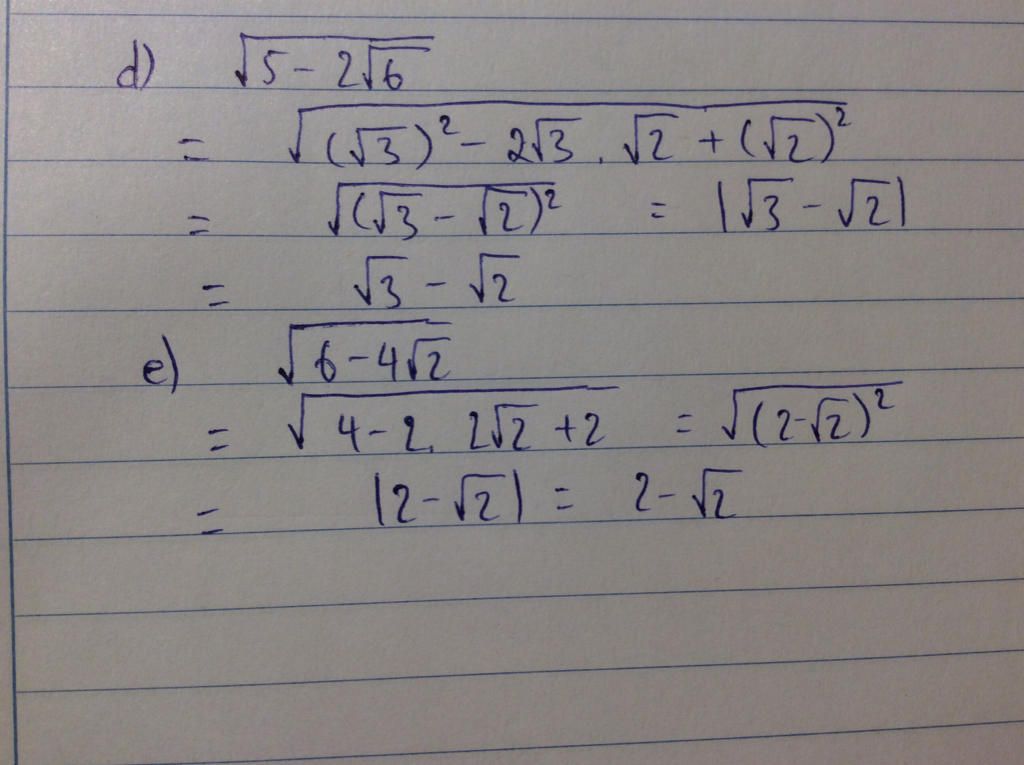 d) √(5 - 2√6)
= √((√3)² - 2√3 . √2 + (√2)²)
= √((√3 - √2)²) = |√3 - √2|
= √3 - √2
e) √(6 - 4√2)
= √(4 - 2. 2√2 + 2) = √((2-√2)²)
= |2 - √2| = 2 - √2